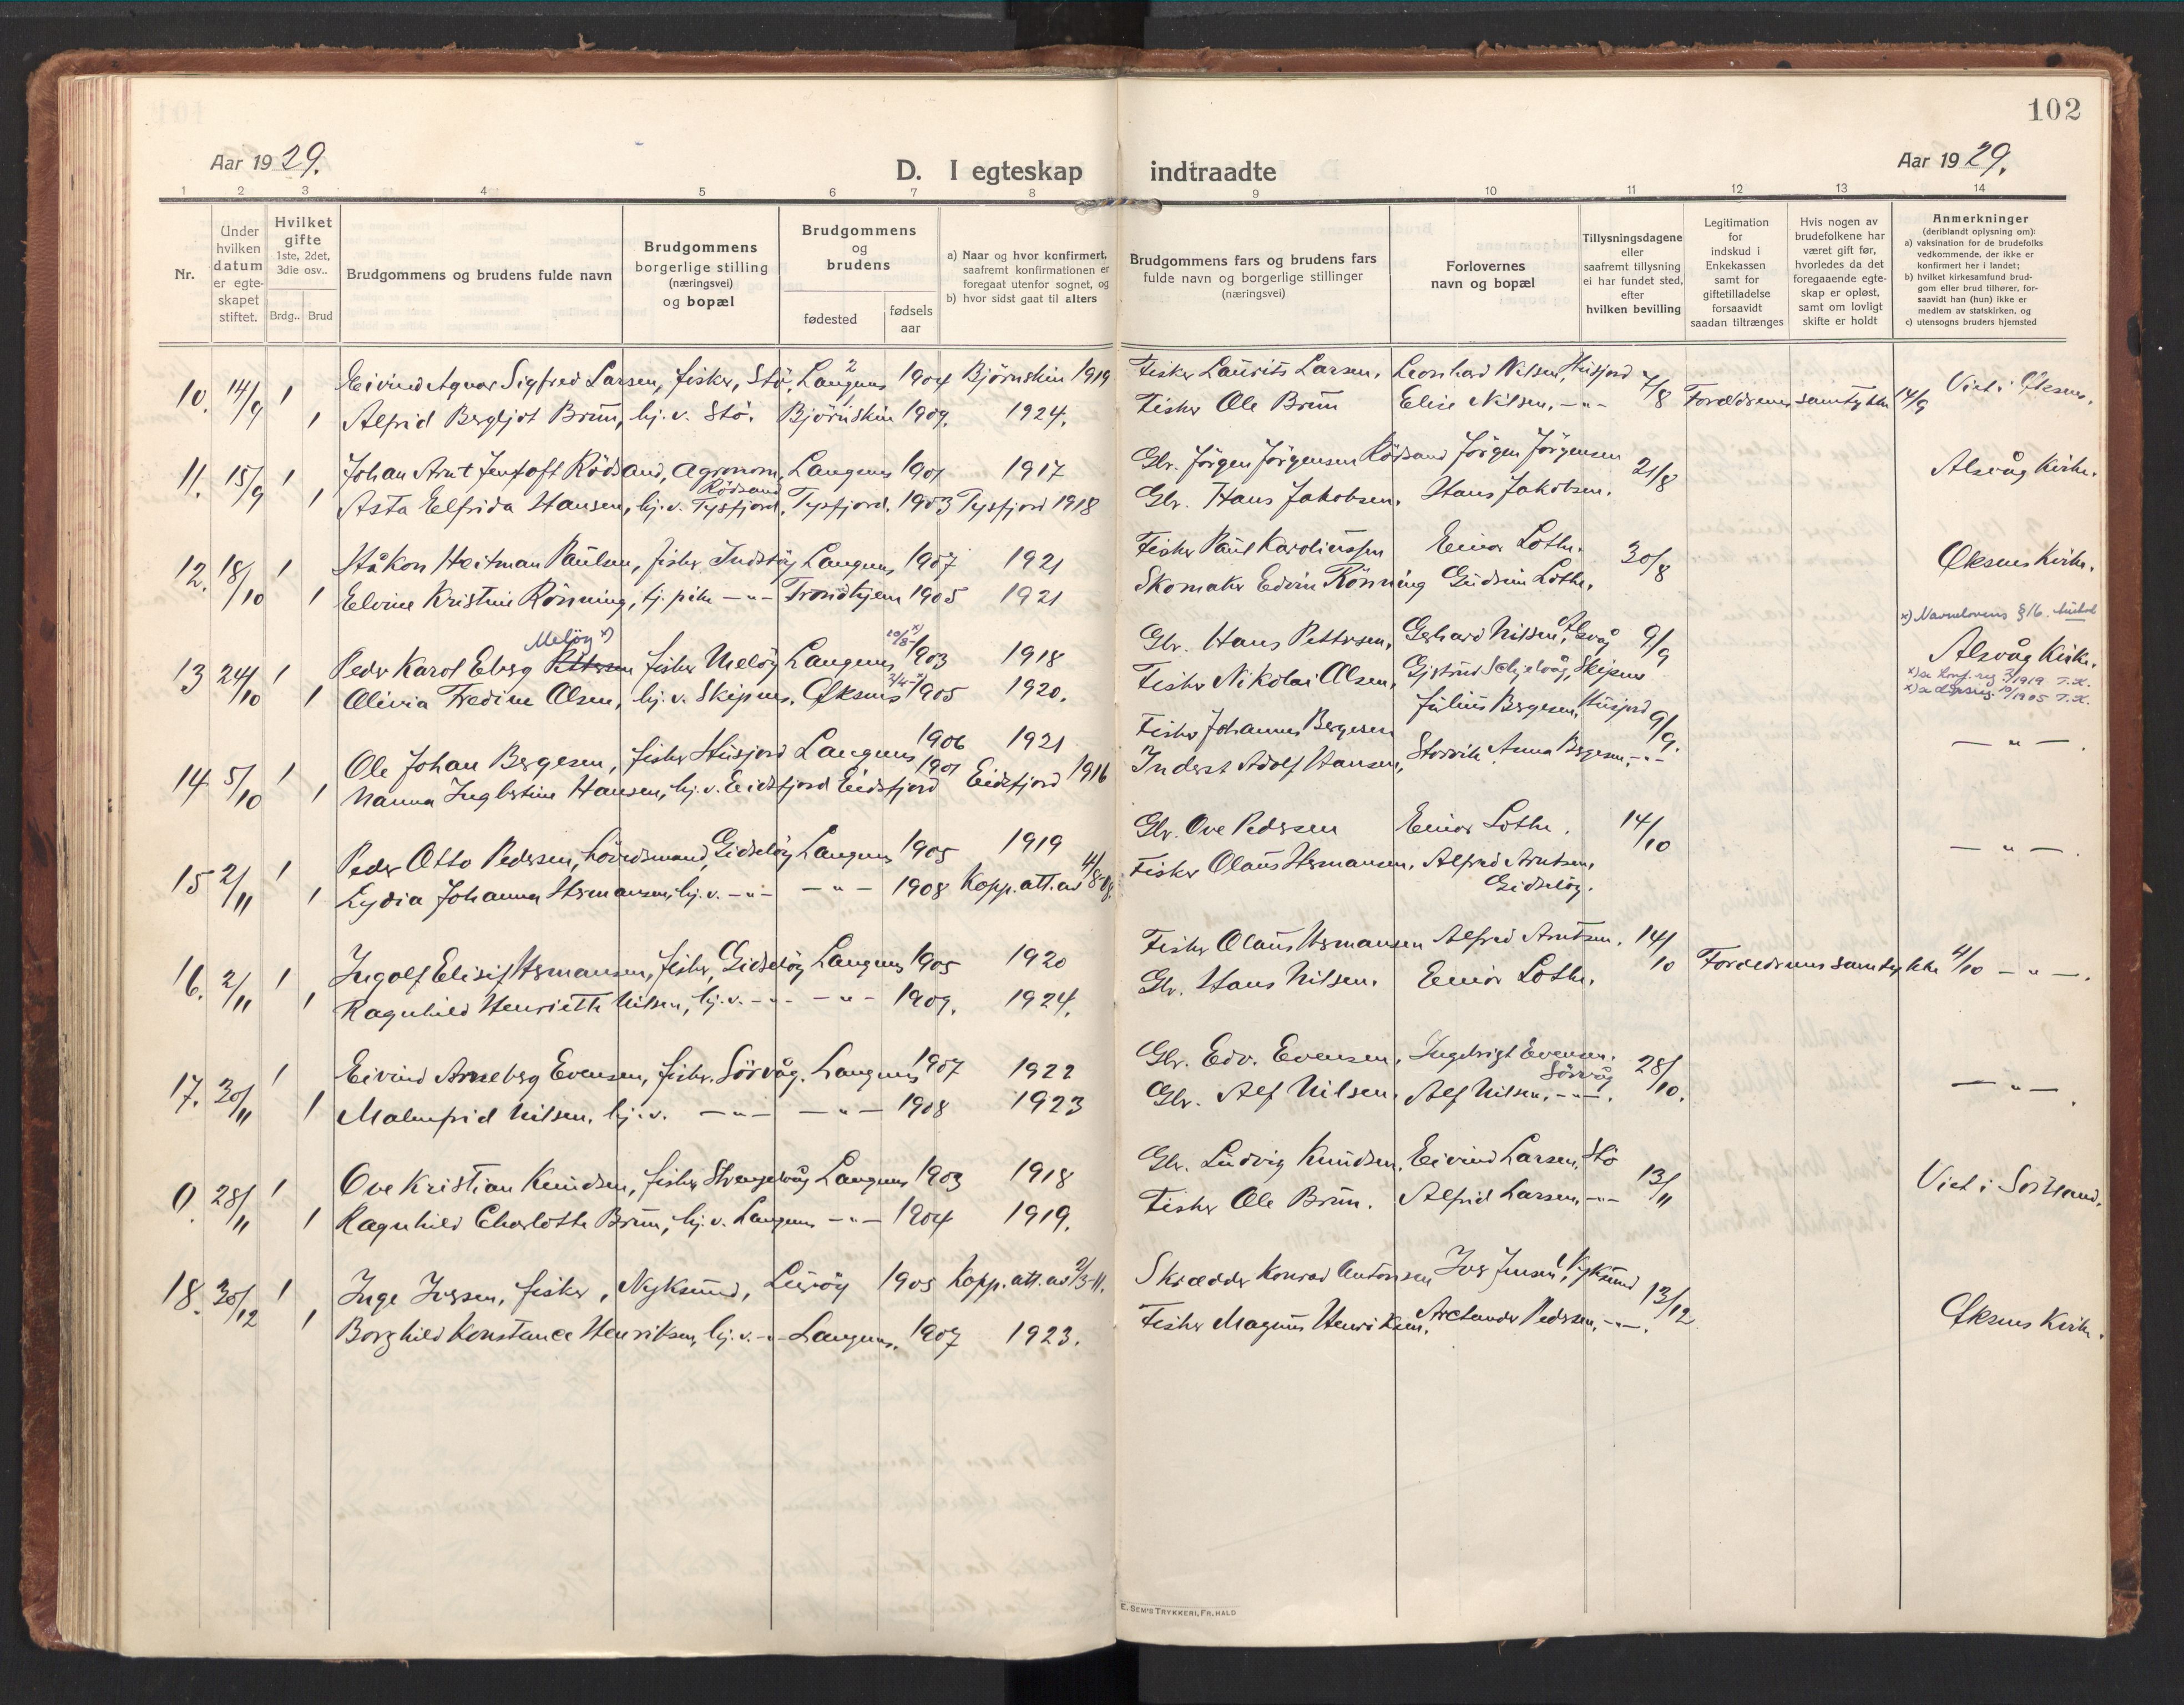 102
Aar 1929.
D. I egteskap indtraadte
Aar 1929.
1 2 3 4 5 6 7 8 9 10 11 12 13 14
Nr.
Under hvilken datum er egteskapet stiftet.
Hvilket gifte 1ste, 2det, 3die osv..
Brdg.. Brud
Brudgommens og brudens fulde navn
Brudgommens borgerlige stilling (næringsvei) og bopæl
Brudgommens og brudens
fødested
fødsels aar
a) Naar og hvor konfirmert, saafremt konfirmationen er foregaat utenfor sognet, og
b) hvor sidst gaat til alters
Brudgommens fars og brudens fars fulde navn og borgerlige stillinger (næringsvei)
Forlovernes navn og bopæl
Tillysningsdagene eller saafremt tillysning ei har fundet sted, efter hvilken bevilling
Legitimation for indskud i Enkekassen samt for giftetilladelse forsaavidt saadan tiltrænges
Hvis nogen av brudefolkene har været gift før, hvorledes da det foregaaende egteskap er opløst, samt om lovligt skifte er holdt
Anmerkninger (deriblandt oplysning om):
a) vaksination for de brudefolks vedkommende, der ikke er konfirmert her i landet;
b) hvilket kirkesamfund brudgom eller brud tilhører, forsaavidt han (hun) ikke er medlem av statskirken, og
c) utensogns bruders hjemsted
10. 14/9 1 Eivind Agnar Sigfred Larsen, fisker, Stö, Langenes 1904 Björnskin 1919 Fisker Laurits Larsen. Leonhard Nilsen, Husjord 7/8 Forældrenes samtykke 14/9 Viet i Öksnes.
1 Alfrid Bergljot Brun, hj. v. Stö. Björnskin 1909. 1924. Fisker Ole Brun Elise Nilsen. -"-
11. 15/9 1 Johan Arnt Jentoft Rödsand, agronom, Rödsand Langenes 1901 1917 Gbr. Jörgen Jörgensen Rödsand Jörgen Jörgensen 21/8 Alsvåg Kirke.
1 Asta Elfrida Hansen, hj. v. Tysfjord, Tysfjord. 1903 Tysfjord 1918 Gbr. Hans Jakobsen. Hans Jakobsen.
12. 18/10 1 Håkon Heitman Paulsen, fisker Indstöy Langenes 1907 1921 Fisker Paul Karolinssen Einar Lothe. 30/8 Öksnes Kirke.
1 Elvine Kristine Rönning, tj. pike -"- Trondhjem 1905 1921 Skomaker Edvin Rönning Gudrun Lothe.
x) Navnelovens § 16.
13 24/10 1 Peder Karol Eberg Pettersen Melöy x) fisker Melöy Langenes 20/8 x) 1903 1918 Gbr. Hans Pettersen, Gerhard Nilsen, Alsvåg 9/9 Alsvåg Kirke.
1 Olivia Fredine Olsen, hj. v. Skipnes. Öksnes 1905 1920. Fisker Nikolai Olsen, Gjertrud Schjelvåg, Skipnes
14 5/10 1 Ole Johan Bergesen, fisker Husjord Langenes 1906 1921 Fisker Johannes Bergesen Julius Bergesen, Husjord 9/9. -"-.
1 Nanna Ingbertine Hansen, hj. v. Eidsfjord Eidsfjord 1901 Eidsfjord 1916 Inderst Adolf Hansen, Storvik. Anna Bergesen, -"-
15 2/11 1 Peder Otto Pedersen, hövedsmand, Gidslöy Langenes 1905 1919 Gbr. Ove Pedersen Einar Lothe. 14/10 -"-.
1 Lydia Johanna Hermansen, hj. v. -"- -"- 1908 Kopp. att. av 4/8-18. Fisker Olaus Hermansen, Alfred Arntsen, Gidslöy.
16. 2/11 1 Ingolf Elisif Hermansen, fisker, Gidslöy Langenes 1905 1920 Fisker Olaus Hermansen Alfred Arntsen. 14/10 Forældrenes samtykke 4/10 -"-.
1 Ragnhild Henriette Nilsen, hj. v. -"- -"- 1909. 1924. Gbr. Hans Nilsen. Einar Lothe.
17. 30/11 1 Eivind Arneberg Evensen, fisker. Sörvåg. Langenes 1907 1922 Gbr. Edv. Evensen, Ingebrigt Evensen. Sörvåg 28/10. -"-.
1 Malmfrid Nilsen, hj. v. -"- -"- 1908 1923 Gbr. Alf Nilsen. Alf Nilsen, -"-.
0. 28/11 1 Ove Kristian Knudsen, fisker Strengelvåg Langenes 1903 1918 Gbr. Ludvig Knudsen. Eivind Larsen, Stö 13/11 Viet i Sortland.
1 Ragnhild Charlotte Brun, hj. v. Langenes -"- 1904 1919. Fisker Ole Brun. Alfrid Larsen, -"-
18. 30/12 1 Inge Iversen, fisker, Nyksund, Luröy 1905 Kopp. att. av 2/3-11. Skrædder Konrad Antonsen Iver Jensen, Nyksund 13/12 Öksnes Kirke.
1 Borghild Konstance Henriksen, hj. v. -"- Langenes. 1907 1923. Fisker Magnus Henriksen. Arctander Pedersen, -"-.
E. SEM'S TRYKKERI, FR.HALD